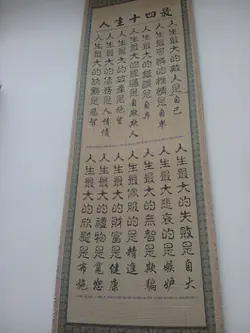 人生十四最
人生最大的敵人是自己
人生最可憐的性情是自卑
人生最大的錯誤是自棄
人生最大的罪過是自欺欺人
人生最大的破產是絕望
人生最大的債務是人情債
人生最大的欠缺是悲智
人生最大的失敗是自大
人生最大悲哀的是嫉妒
人生最大的無智是欺騙
人生最佩服的是精進
人生最大的財富是健康
人生最大的禮物是寬恕
人生最大的欣慰是布施